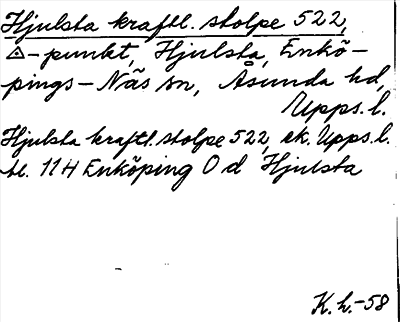 Hjulsta kraftl. stolpe 522,
△-punkt, Hjulsta, Enkö-
pings-Näs sn, Åsunda hd,
Upps. l.
Hjulsta kraftl. stolpe 522, ek. Upps. l.
bl. 11H Enköping O d Hjulsta
K. h. -58